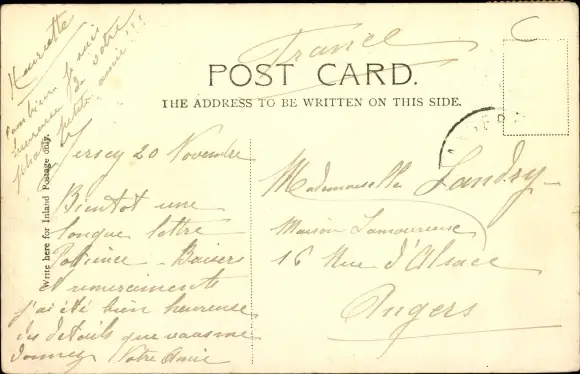 Henriette
combien je suis
heureuse de votre
petite amie!!!
France
POST CARD.
THE ADDRESS TO BE WRITTEN ON THIS SIDE.
Write here for Inland Postage only.
Jersey 20 Novembre
Bientot une
longue lettre
Patience - Baisers
et remerciements
j'ai été bien heureuse
des details que vous me
donnez Votre Amie
Mademoiselle Landry
Maison Lamoureuse
16 Rue d'Alsace
Angers